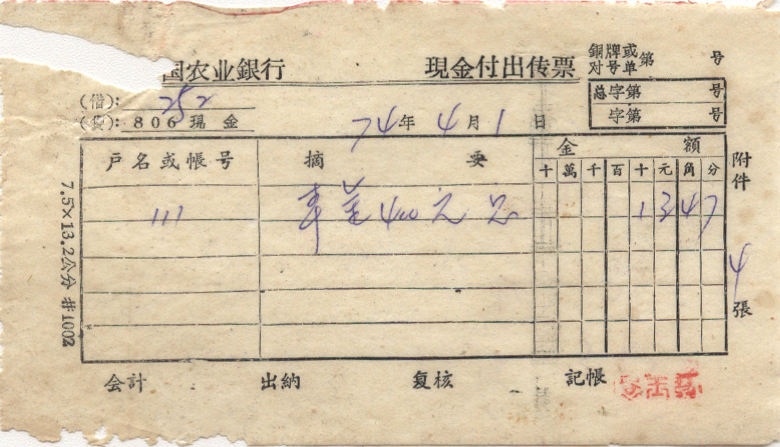 国农业銀行 現金付出传票
銅牌或
对号单 第 号
总字第 号
字第 号
(借): 252
(贷): 806 現金
74年4月1日
戶名或帳号 摘要 金額
十 萬 千 百 十 元 角 分
111 400元 1 3 4 7
附件 4 張
7.5×13.2公分 #1002
会計 出納 复核 記帳